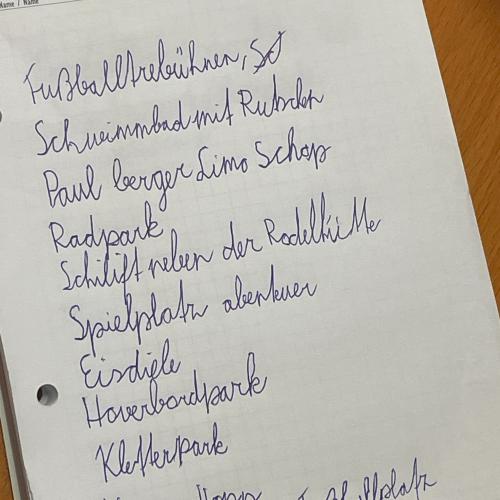 Name / Name
Fußballtrebühnen,
Schweimmbad mit Rutschen
Paul berger Limo Schop
Radpark
Schilift neben der Rodelhütte
Spielplatz abenteuer
Eisdiele
Hoverbordpark
Kletterpark